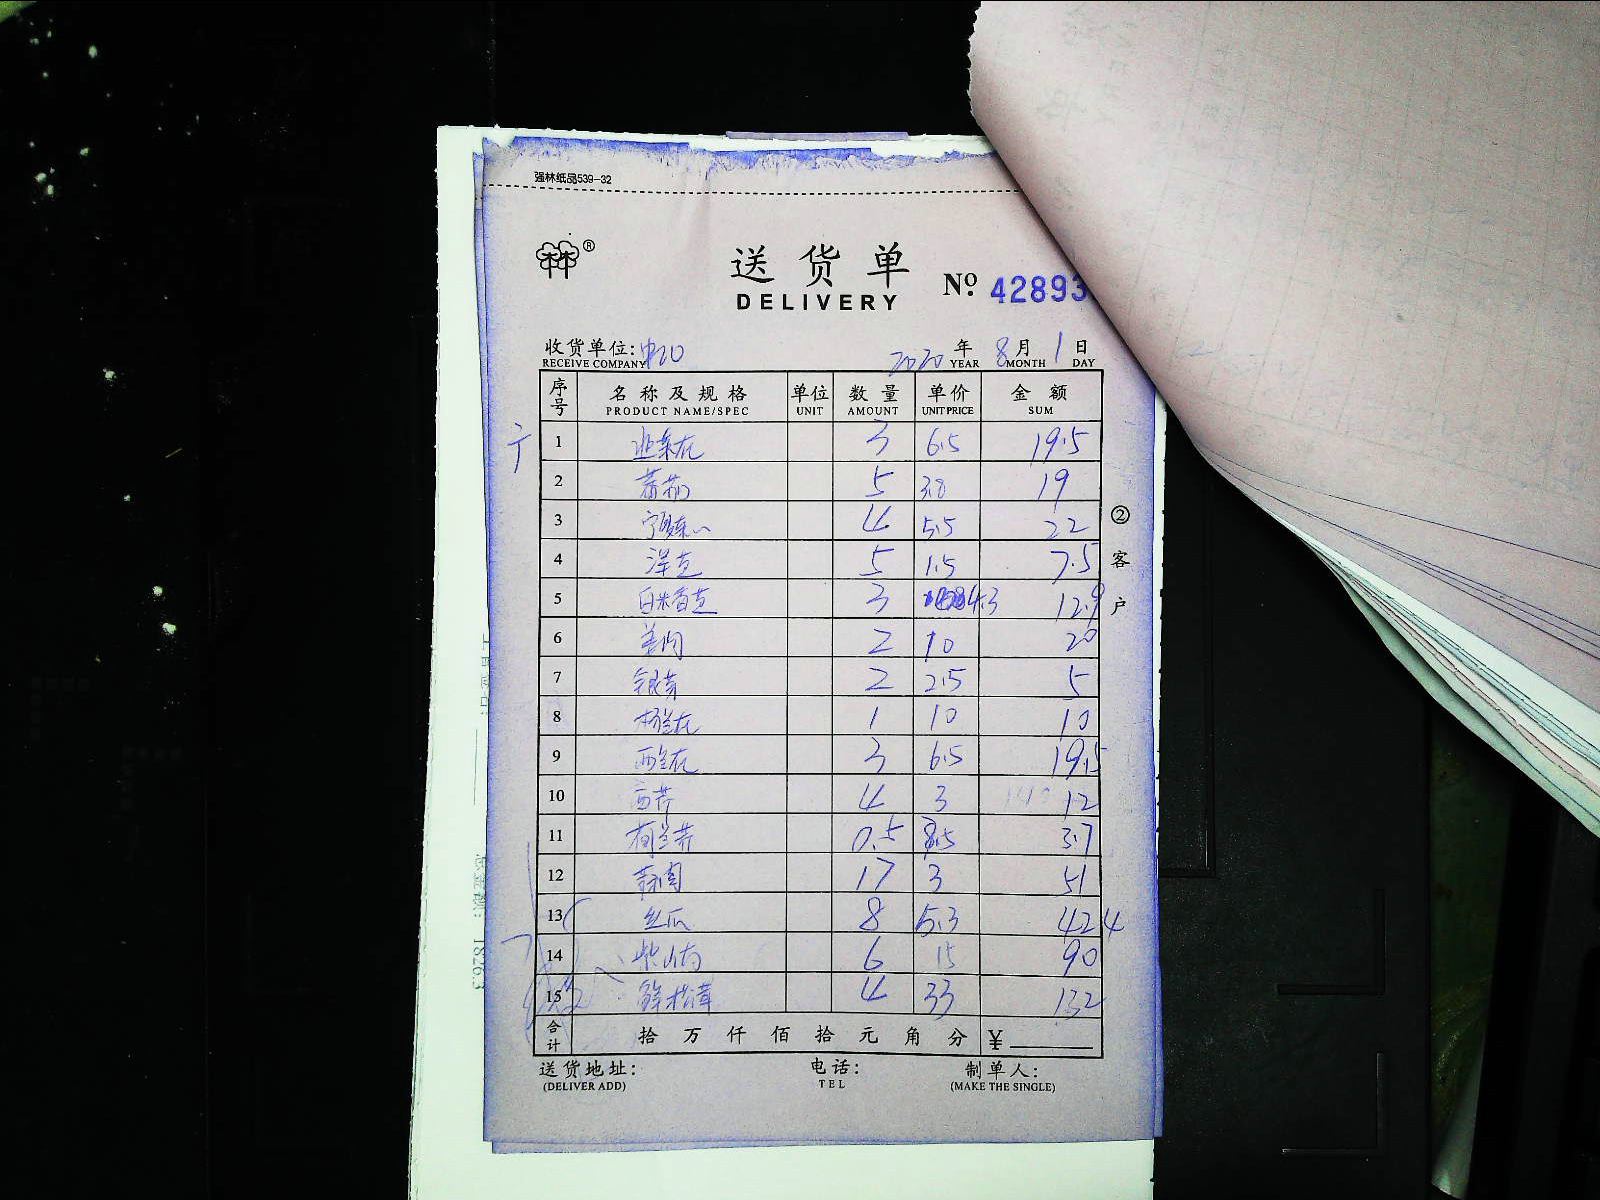 强林纸品539-32
林®
送货单
DELIVERY
Nº 42893
收货单位:
RECEIVE COMPANY
2020 年 YEAR 8 月 MONTH 1 日 DAY
序号 名称及规格 PRODUCT NAME/SPEC 单位 UNIT 数量 AMOUNT 单价 UNIT PRICE 金额 SUM
1 韭菜花 3 6.5 19.5
2 蕃茄 5 3.8 19
3 4 5.5 22
4 洋芋 5 1.5 7.5
5 3 4.3 12.9
6 姜肉 2 10 20
7 银芽 2 2.5 5
8 1 10 10
9 西兰花 3 6.5 19.5
10 西芹 4 3 12
11 荷兰芹 0.5 .5 3.7
12 蒜肉 17 3 51
13 丝瓜 8 5.3 42.4
14 6 15 90
15 4 33 132
合计 拾 万 仟 佰 拾 元 角 分 ¥
送货地址:
(DELIVER ADD)
电话:
TEL
制单人:
(MAKE THE SINGLE)
②客户